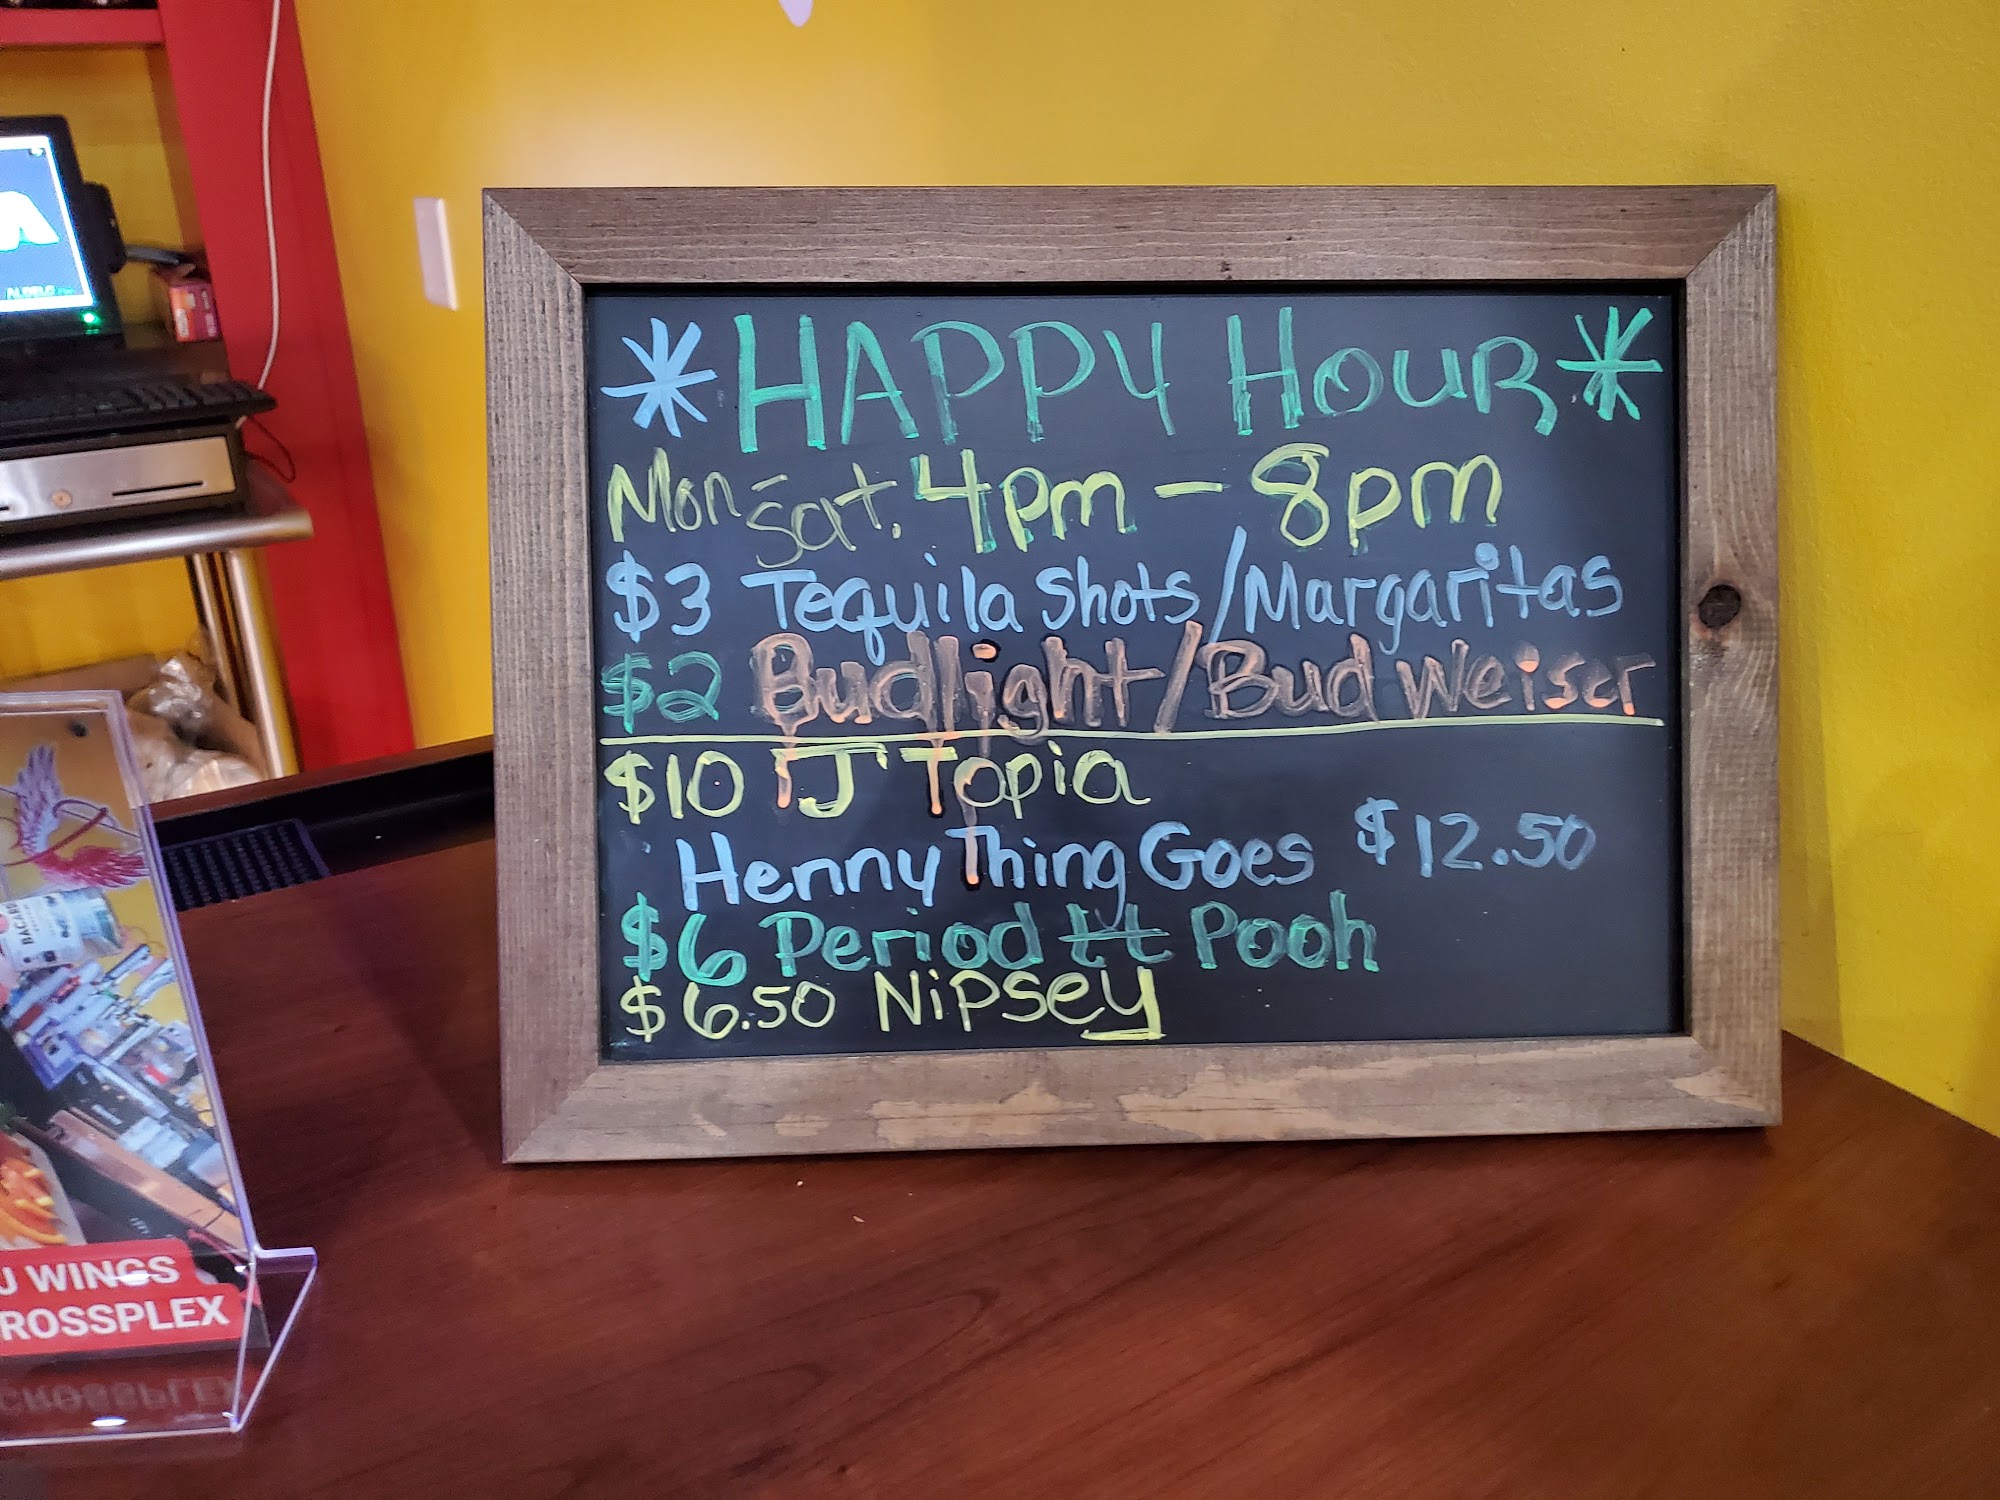 *HAPPY HOUR*
Mon-Sat. 4pm - 8pm
$3 Tequila Shots/Margaritas
$2 Budlight/Budweiser
$10 J'Topia
Henny Thing Goes $12.50
$6 Period tt Pooh
$6.50 Nipsey
BACARD
J WINGS
ROSSPLEX